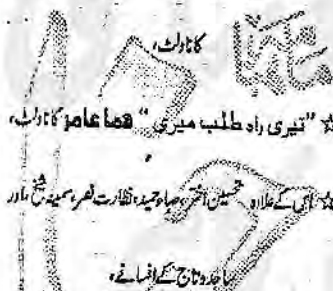 کا ناولٹ،
☆ "تیری راہ طلب میری" هما عامر کا ناولٹ،
☆ اس کے علاوہ تحسین اختر، صباء حمید، نظارت نصر، سمینہ شیخ، اور
ساجدہ تاج کے افسانے،